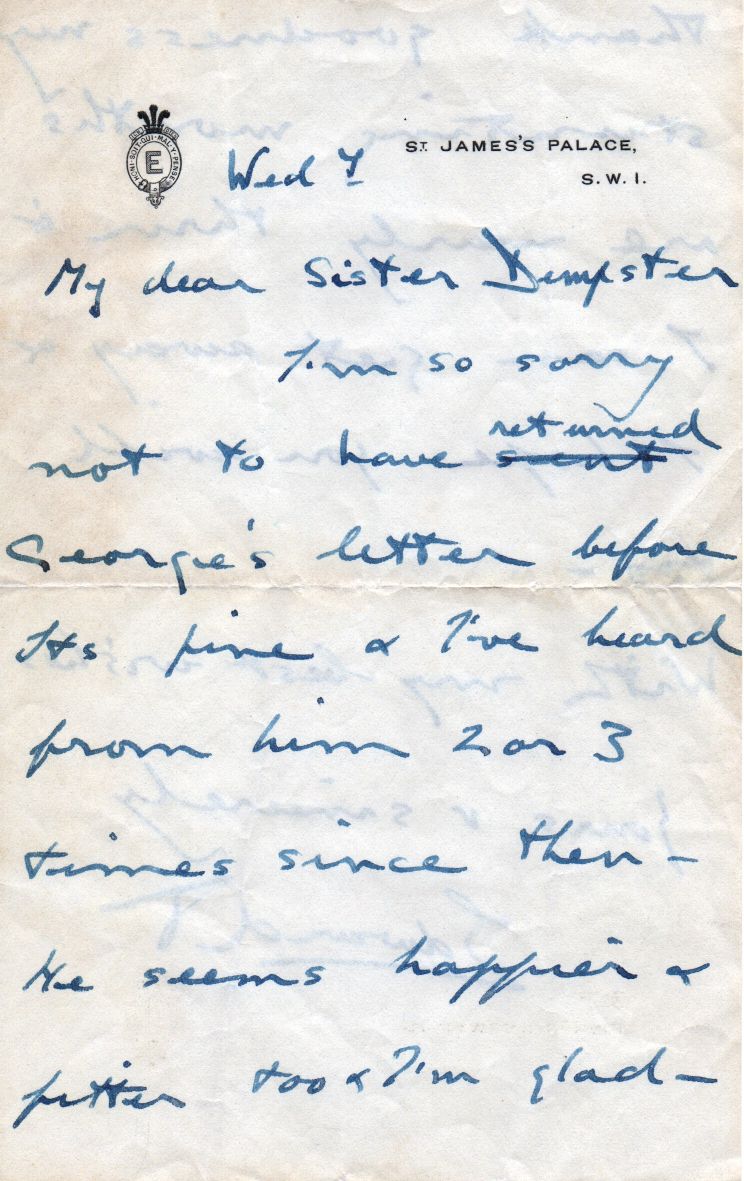 HONI·SOIT·QUI·MAL·Y·PENSE
E
ST. JAMES'S PALACE,
S.W.1.
Wed Y
My dear Sister Dempster
I'm so sorry
not to have sent returned
George's letter before
Its fine & I've heard
from him 2 or 3
times since then –
He seems happier &
fitter too & I'm glad –